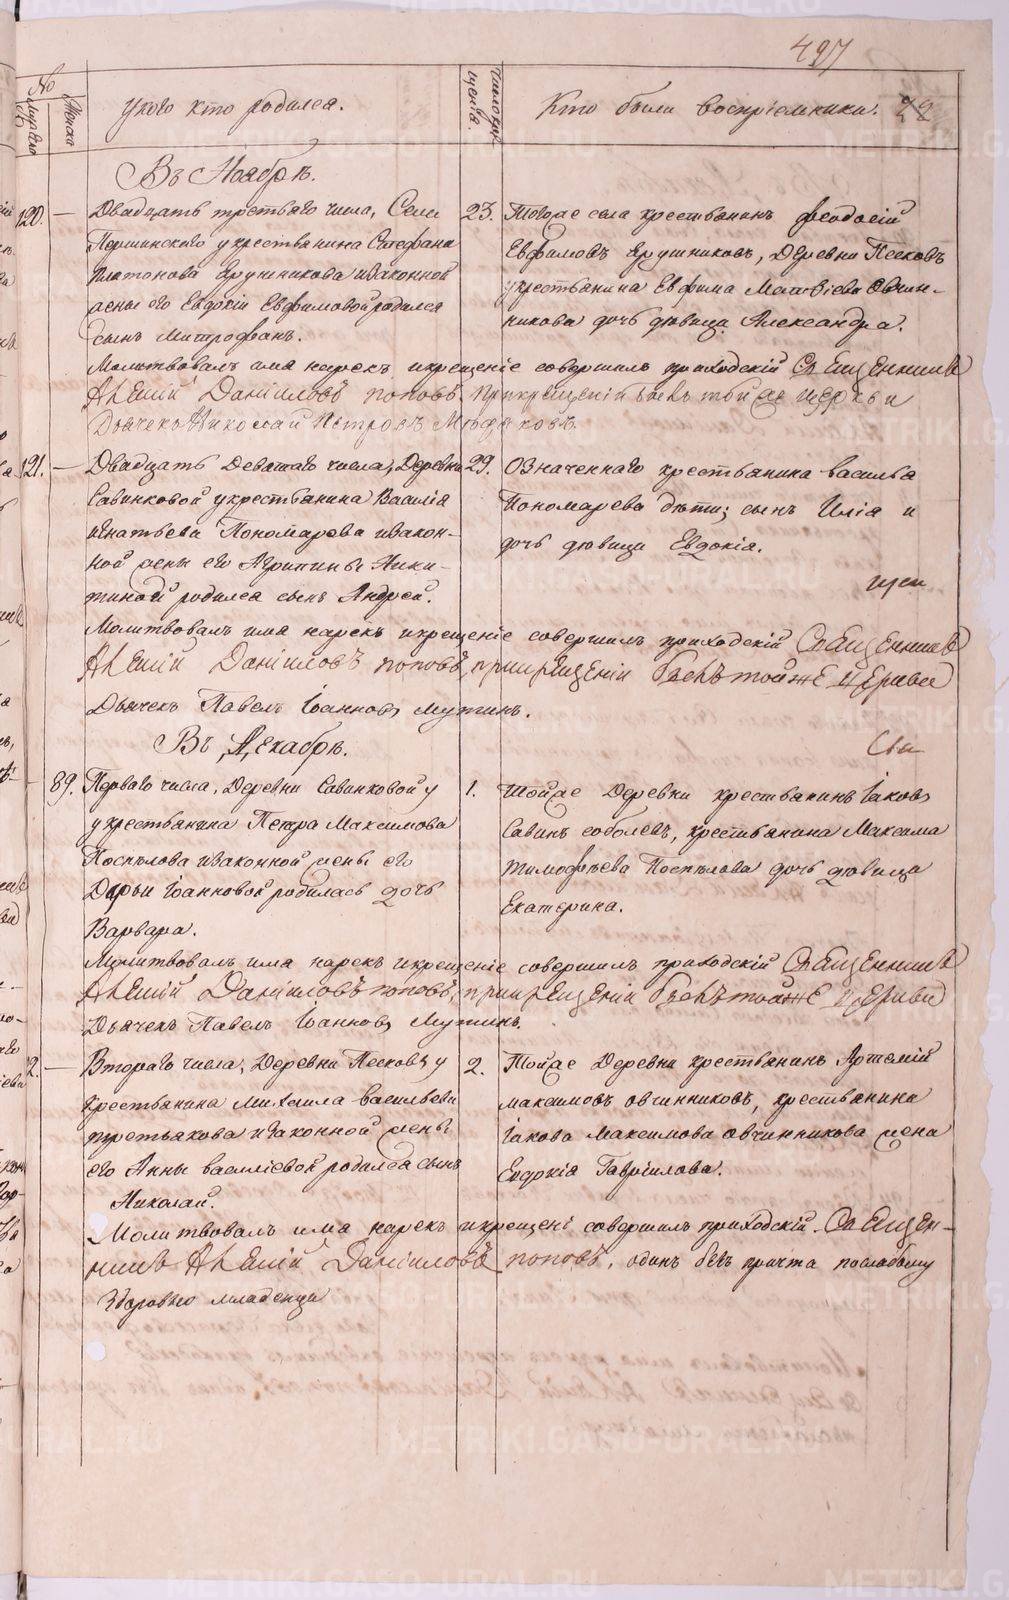 497
№
Мужеска
Женска
У кого кто родился.
Число крещенiя.
Кто были воспрiемники.
28
Въ Ноябрѣ.
120.
Двадцать третьяго числа, Села
Першинскаго у крестьянина Стефана
Платонова Ярушникова и законной
жены его Евдокiи Евфимовой родился
сынъ Митрофанъ.
23.
Тогоже села крестьянинъ Феодосiй
Евфимовъ Ярушниковъ, Деревни Песковъ
у крестьянина Евфима Матвiева Овчин-
никова дочь дѣвица Александра.
Молитвовалъ имя нарекъ и крещенiе совершилъ приходскiй Священникъ
Данiиловъ Поповъ, при крещенiи былъ тойже церкви
Дьячекъ Николай Петровъ
121.
Двадцать Девятаго числа, Деревни
Савинковой у крестьянина Василiя
Игнатьева Пономарева и закон-
ной жены его Агрипины Ники-
тиной родился сынъ Андрей.
29.
Означеннаго крестьянина Василья
Пономарева дѣти; сынъ Илiя и
дочь дѣвица Евдокiя.
Молитвовалъ имя нарекъ и крещенiе совершилъ приходскiй Священникъ
Данiиловъ Поповъ, при крещенiи былъ тойже Церкви
Дьячекъ Павелъ Iоанновъ Мутинъ.
Въ Декабрѣ.
89.
Перваго числа, Деревни Савинковой у
у крестьянина Петра Максимова
Поспѣлова и законной жены его
Дарьи Iоанновой родилась дочь
Варвара.
1.
Тойже Деревни крестьянинъ Iаковъ
Савинъ Соболевъ, крестьянина Максима
Тимофѣева Поспѣлова дочь дѣвица
Екатерина.
Молитвовалъ имя нарекъ и крещенiе совершилъ приходскiй Священникъ
Данiиловъ Поповъ, при крещенiи былъ тойже Церкви
Дьячекъ Павелъ Iоанновъ Мутинъ.
2.
Втораго числа, Деревни Песковъ у
крестьянина Михаила Васильева
Третьякова и законной жены
его Анны Василiевой родился сынъ
Николай.
2.
Тойже Деревни крестьянинъ Артемiй
Максимовъ Овчинниковъ, крестьянина
Iакова Максимова Овчинникова жена
Евдокiя Гаврiилова.
Молитвовалъ имя нарекъ и крещенi совершилъ приходскiй Священ-
никъ Данiиловъ Поповъ, одинъ безъ причта по слабому
здоровью младенца
METRIKI.GASO-URAL.RU